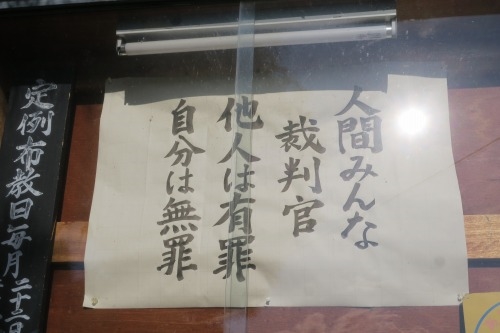 人間みんな
裁判官
他人は有罪
自分は無罪
定例布教日毎月二十二日